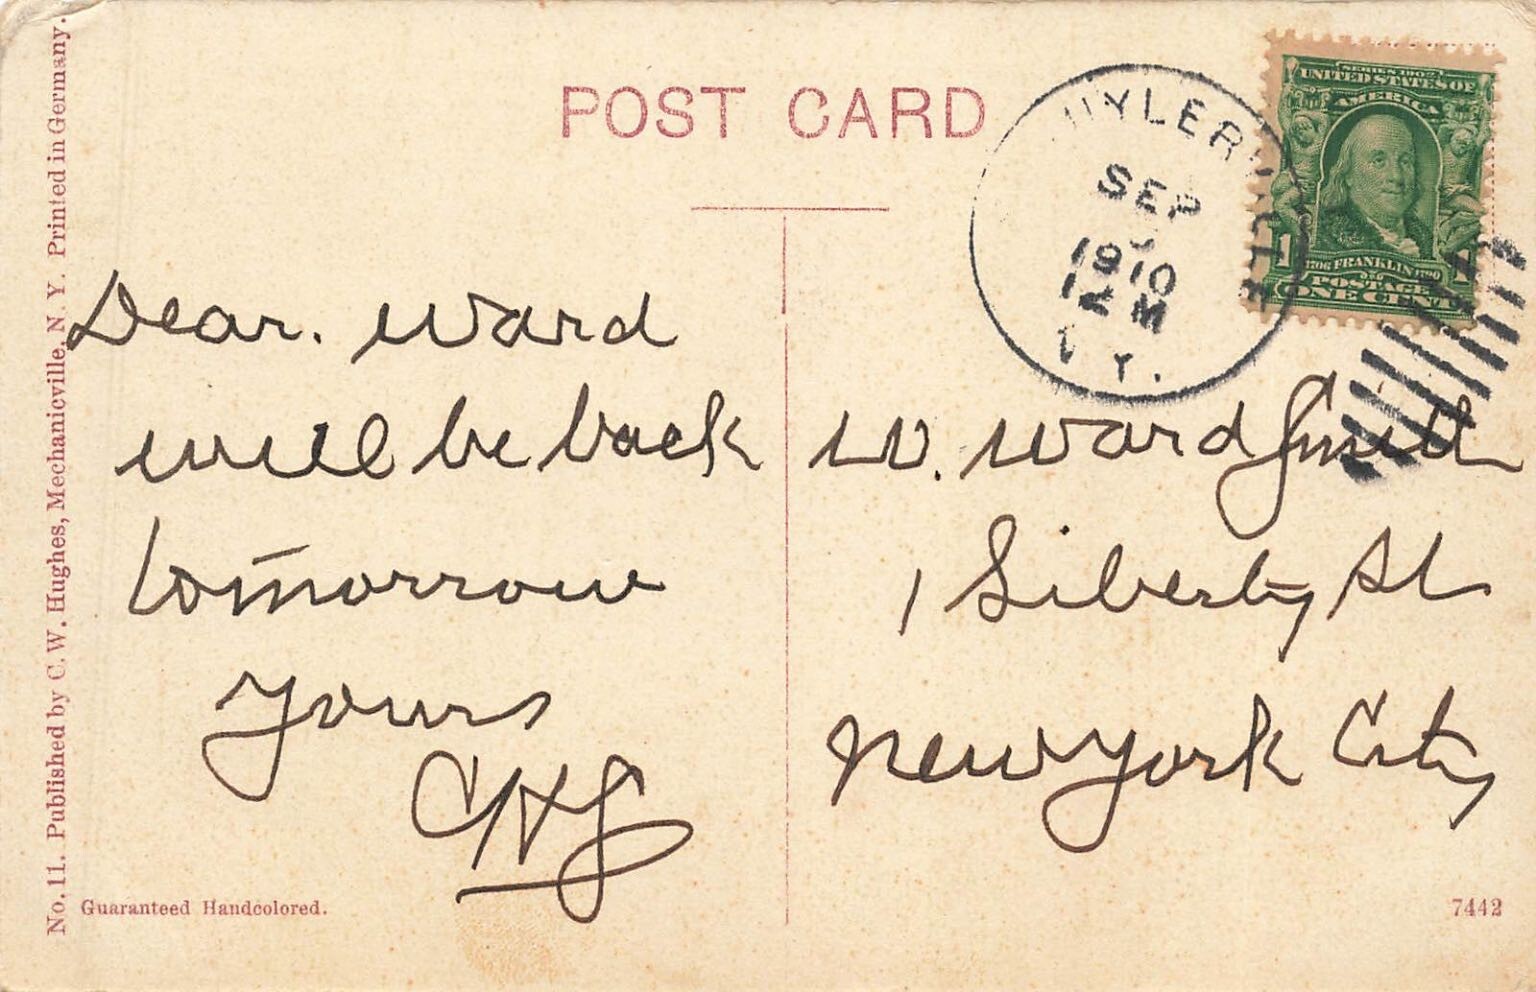 POST CARD
No. 11. Published by C. W. Hughes, Mechanicville, N. Y. Printed in Germany.
SEP
1910
12 M
SERIES 1902
UNITED STATES OF
AMERICA
1
1706 FRANKLIN 1790
POSTAGE
ONE CENT
Dear Ward
will be back
tomorrow
yours
W. Ward Smith
1 Liberty St
New York City
Guaranteed Handcolored.
7442